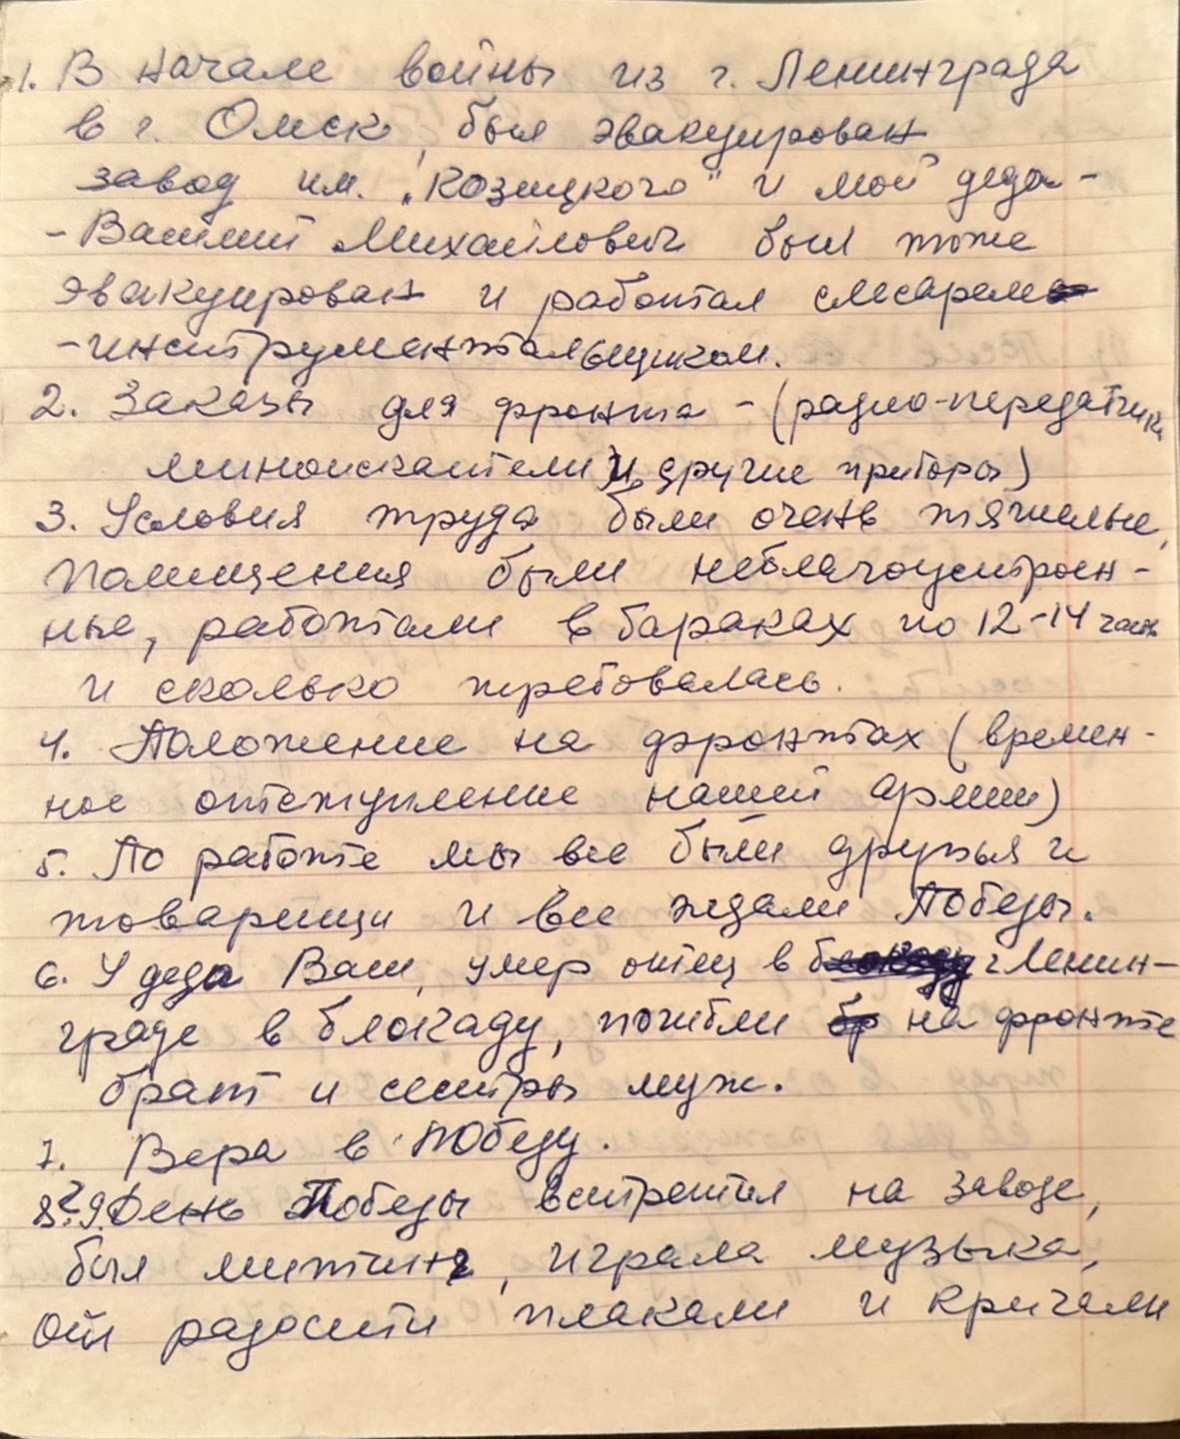 1. В начале войны из г. Ленинграда
в г. Омск, был эвакуирован
завод им. "Козицкого" и мой деда -
- Василий Михайлович был тоже
эвакуирован и работал слесарем
- инструментальщиком.
2. Заказы для фронта - (радио-передатчики
миноискатели и другие приборы)
3. Условия труда были очень тяжелые,
помещения были неблагоустроен-
ные, работали в бараках по 12-14 часов
и сколько требовалась.
4. Положение на фронтах (времен-
ное отступление нашей армии)
5. По работе мы все были друзья и
товарищи и все ждали Победы.
6. У деда Васи, умер отец в блокаду г Ленин-
граде в блокаду, погибли бр на фронте
брат и сестры муж.
7. Вера в Победу.
8?9. День Победы встретил на заводе,
был митинг, играла музыка,
от радости плакали и кричали